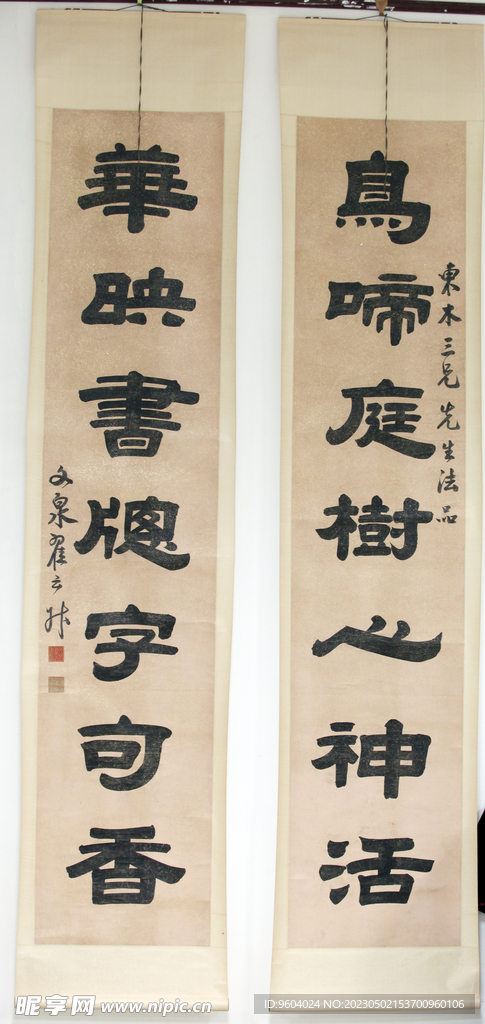 鳥啼庭樹心神活
東木三兄先生法品
華映書牕字句香
文泉翟云升
昵享网 www.nipic.cn
ID:9604024 NO:20230502153700960106